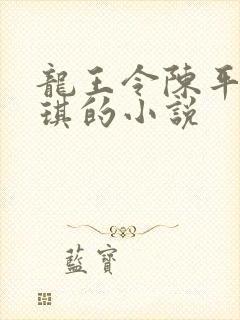 龍王令陳平
琪的小說
藍寶